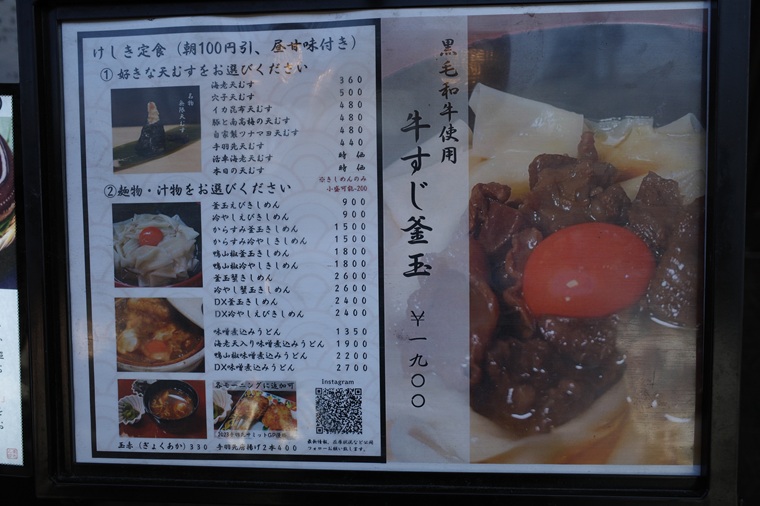 けしき定食（朝100円引、昼甘味付き）
①好きな天むすをお選びください
海老天むす 360
穴子天むす 500
イカ昆布天むす 480
豚と南高梅の天むす 480
自家製ツナマヨ天むす 480
手羽先天むす 440
活車海老天むす 時価
本日の天むす 時価
②麺物・汁物をお選びください
※きしめんのみ
小盛可能-200
釜玉えびきしめん 900
冷やしえびきしめん 900
からすみ釜玉きしめん 1500
からすみ冷やしきしめん 1500
鴨山椒釜玉きしめん 1800
鴨山椒冷やしきしめん 1800
釜玉蟹きしめん 2600
冷やし蟹玉きしめん 2600
DX釜玉きしめん 2400
DX冷やしえびきしめん 2400
味噌煮込みうどん 1350
海老天入り味噌煮込みうどん 1900
鴨山椒味噌煮込みうどん 2200
DX味噌煮込みうどん 2700
名モーニングに追加可
Instagram
玉赤（ぎょくあか）330
手羽先唐揚げ2本400
フォローお願い致します。
黒毛和牛使用
牛すじ釜玉
￥一九〇〇